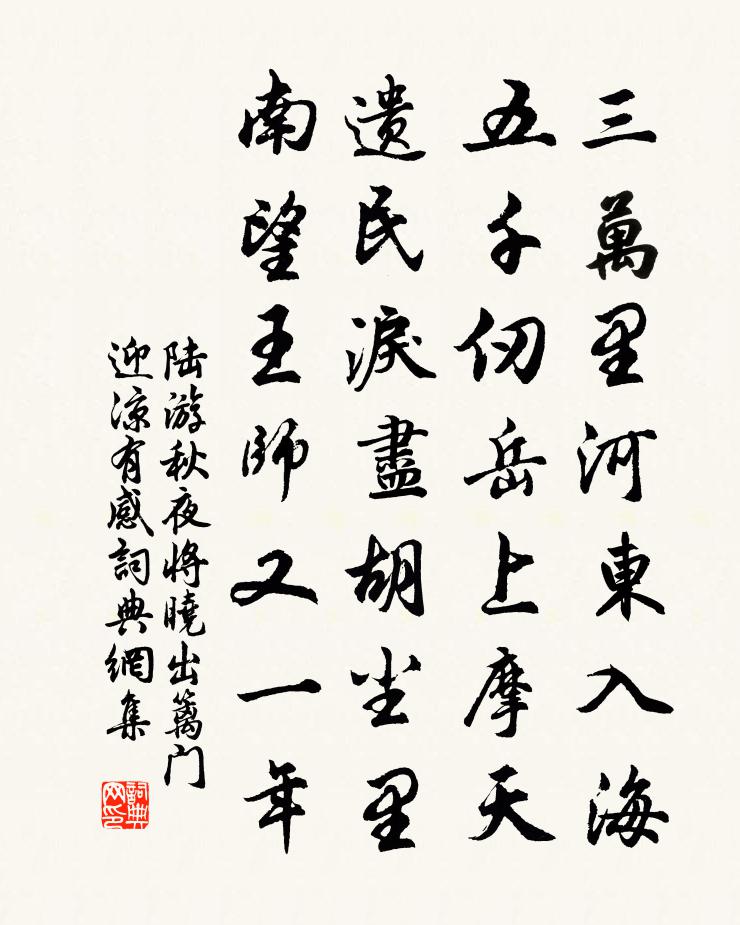 三萬里河東入海
五千仞岳上摩天
遗民淚盡胡尘里
南望王師又一年
陆游秋夜将曉出篱门
迎凉有感詞典網集
詞典网印